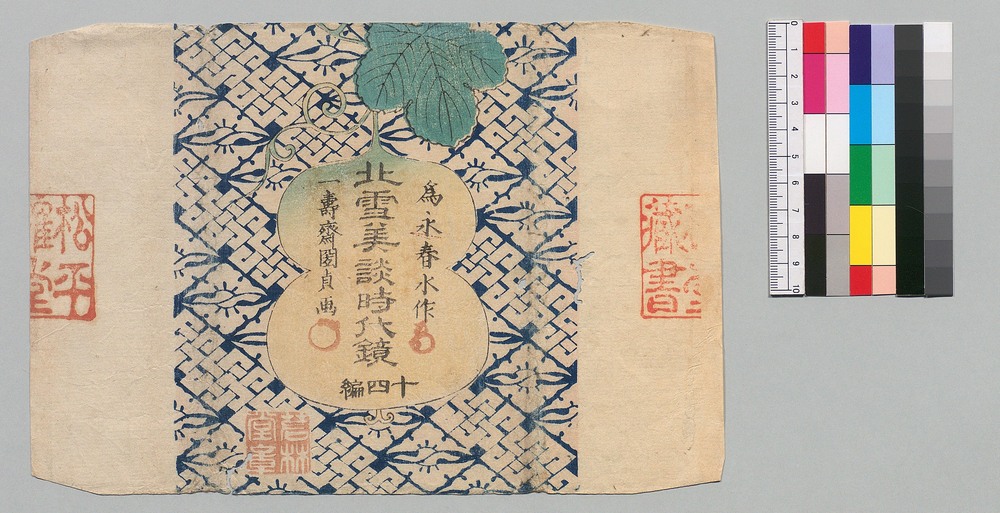 為永春水作
北雪美談時代鏡
十四編
一壽齋國貞画
松平
藏書
若林
堂章
0
1
2
3
4
5
6
7
8
9
10